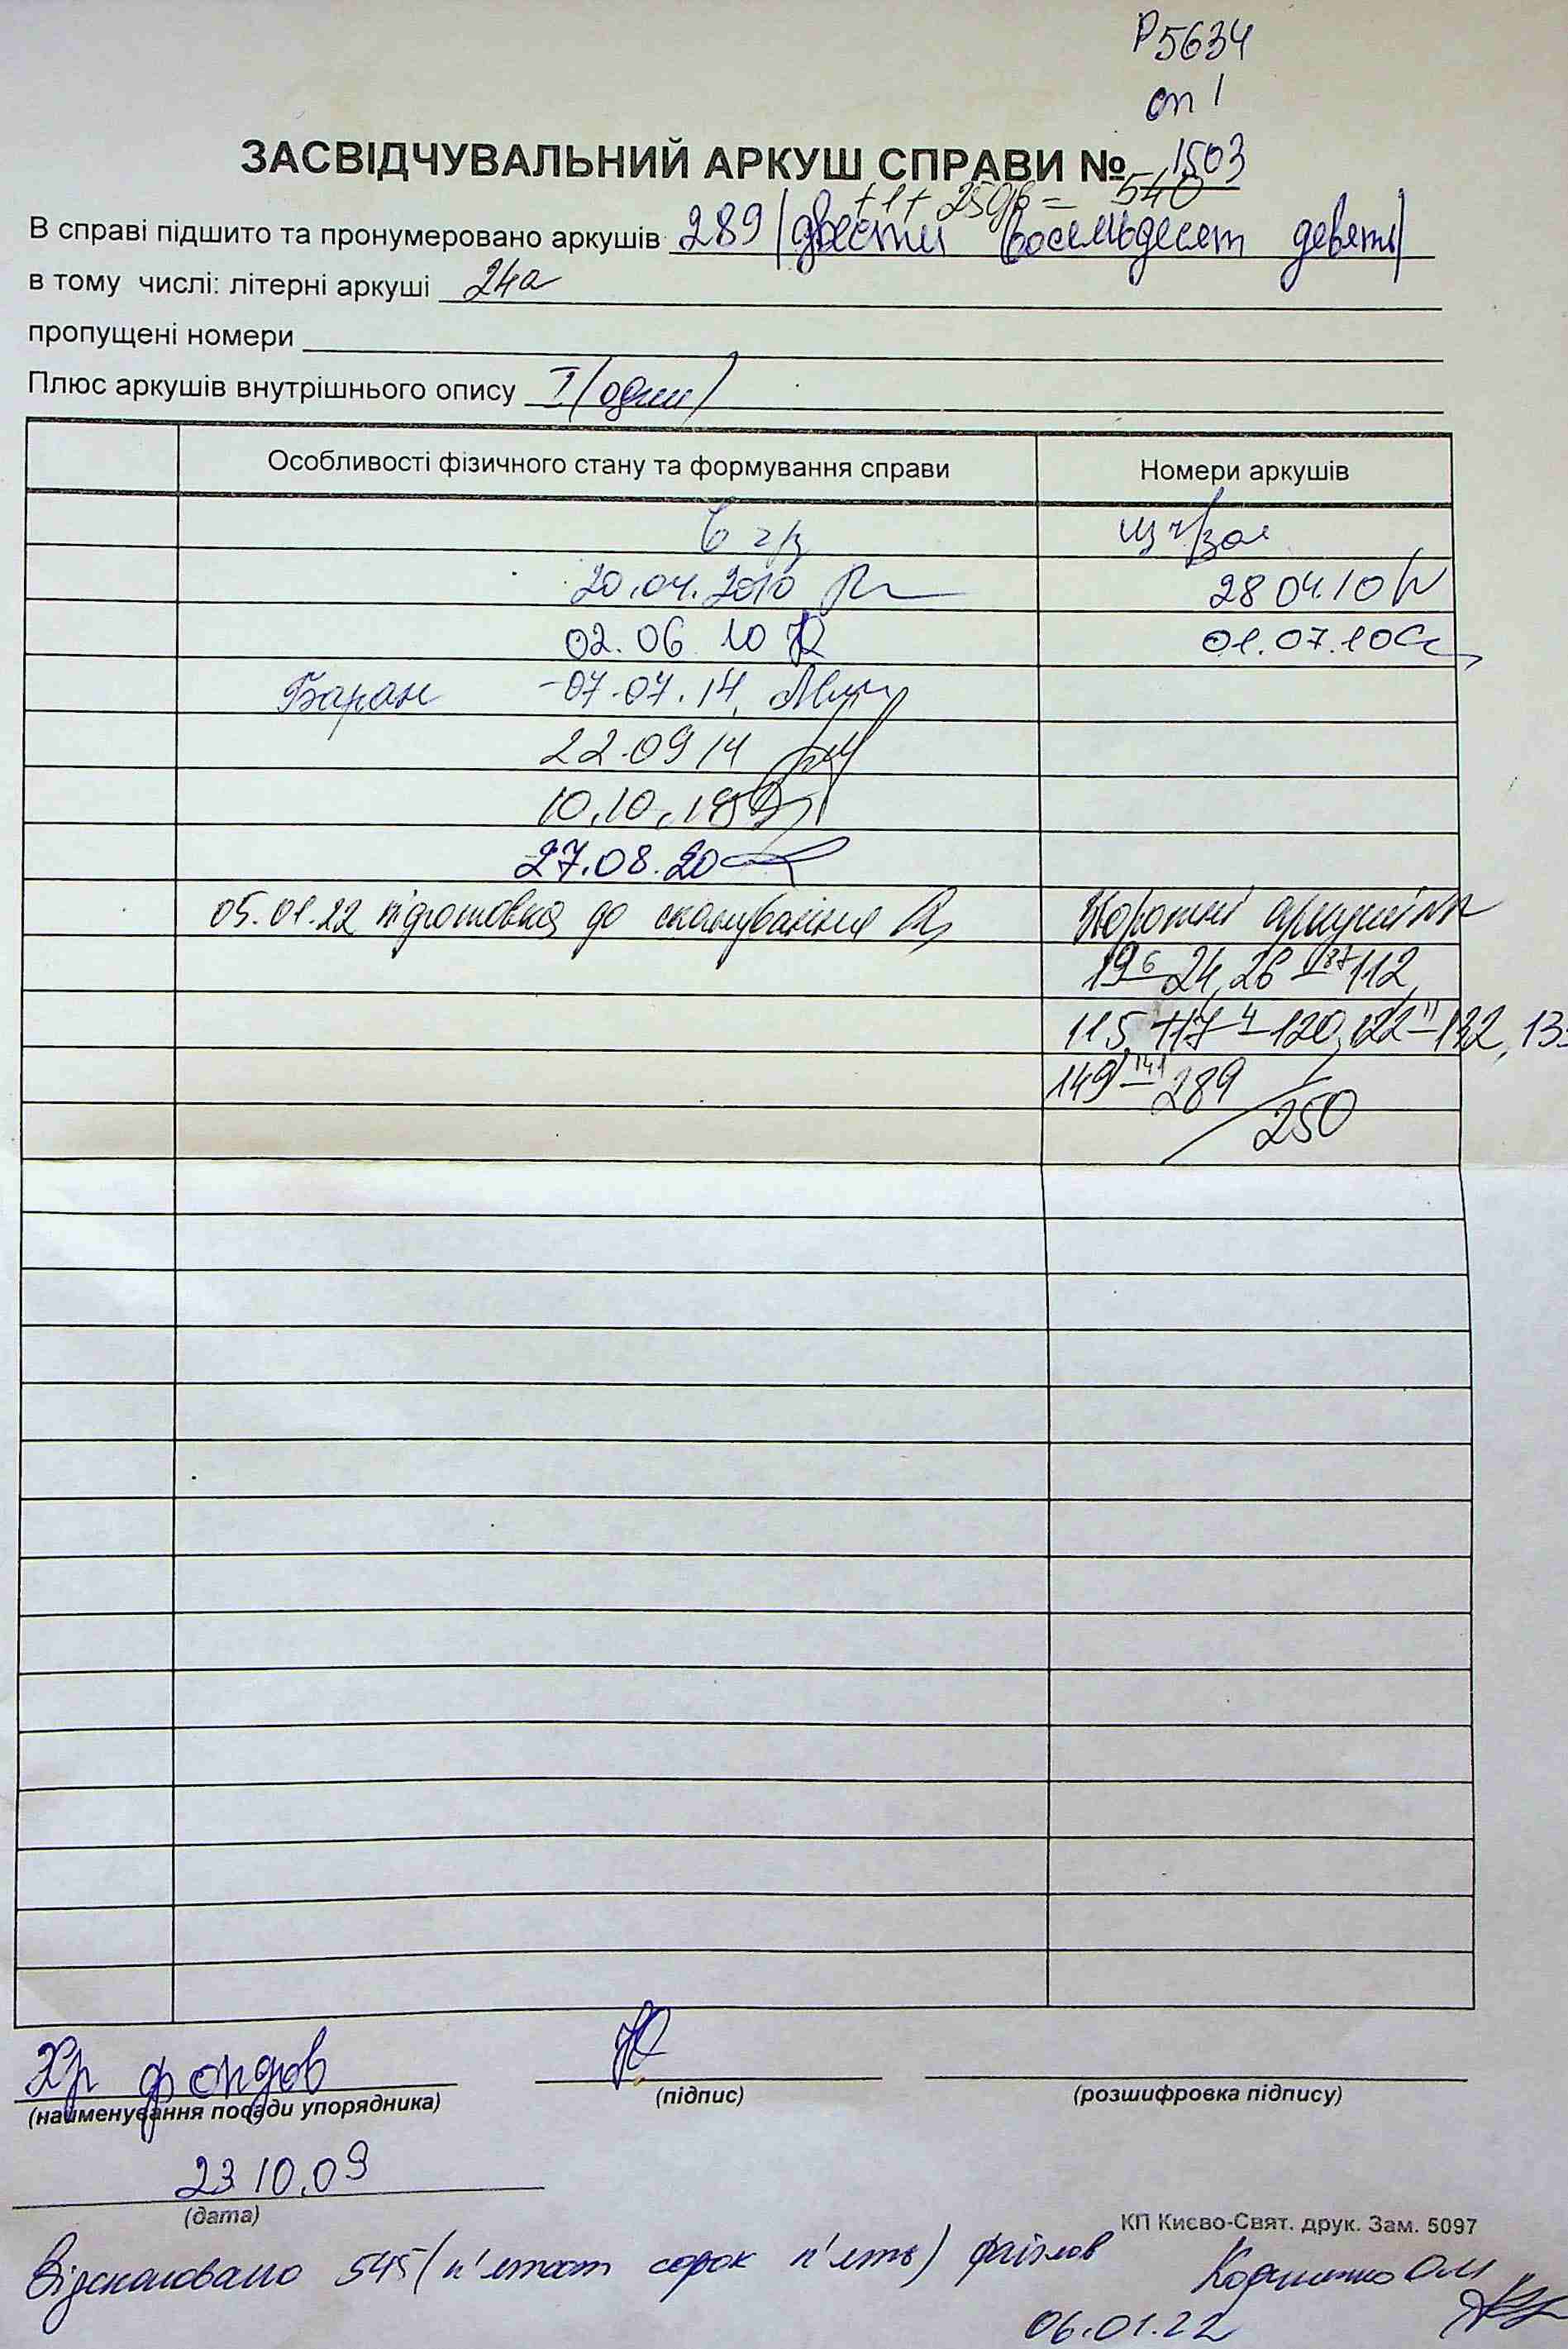 Р5634
оп 1
ЗАСВІДЧУВАЛЬНИЙ АРКУШ СПРАВИ № 1503
+1+ 250 = 540
В справі підшито та пронумеровано аркушів 289 (двести восемьдесят девять)
в тому числі: літерні аркуші 24а
пропущені номери
Плюс аркушів внутрішнього опису I (один)
Особливості фізичного стану та формування справи Номери аркушів
20.04.2010 28 04.10
02.06 10 01.07.10
Баран -07.07.14,
22.09 14
10.10.18
27.08.20
05.01.22 підготовка до сканування
19 6 24, 26 87 112,
115, 117 4 120, 122 11 132, 13
149 141 289
250
Хр фондов
(найменування посади упорядника) (підпис) (розшифровка підпису)
23 10.09
(дата)
КП Києво-Свят. друк. Зам. 5097
Відскановано 545 (п'ятсот сорок п'ять) файлов
06.01.22